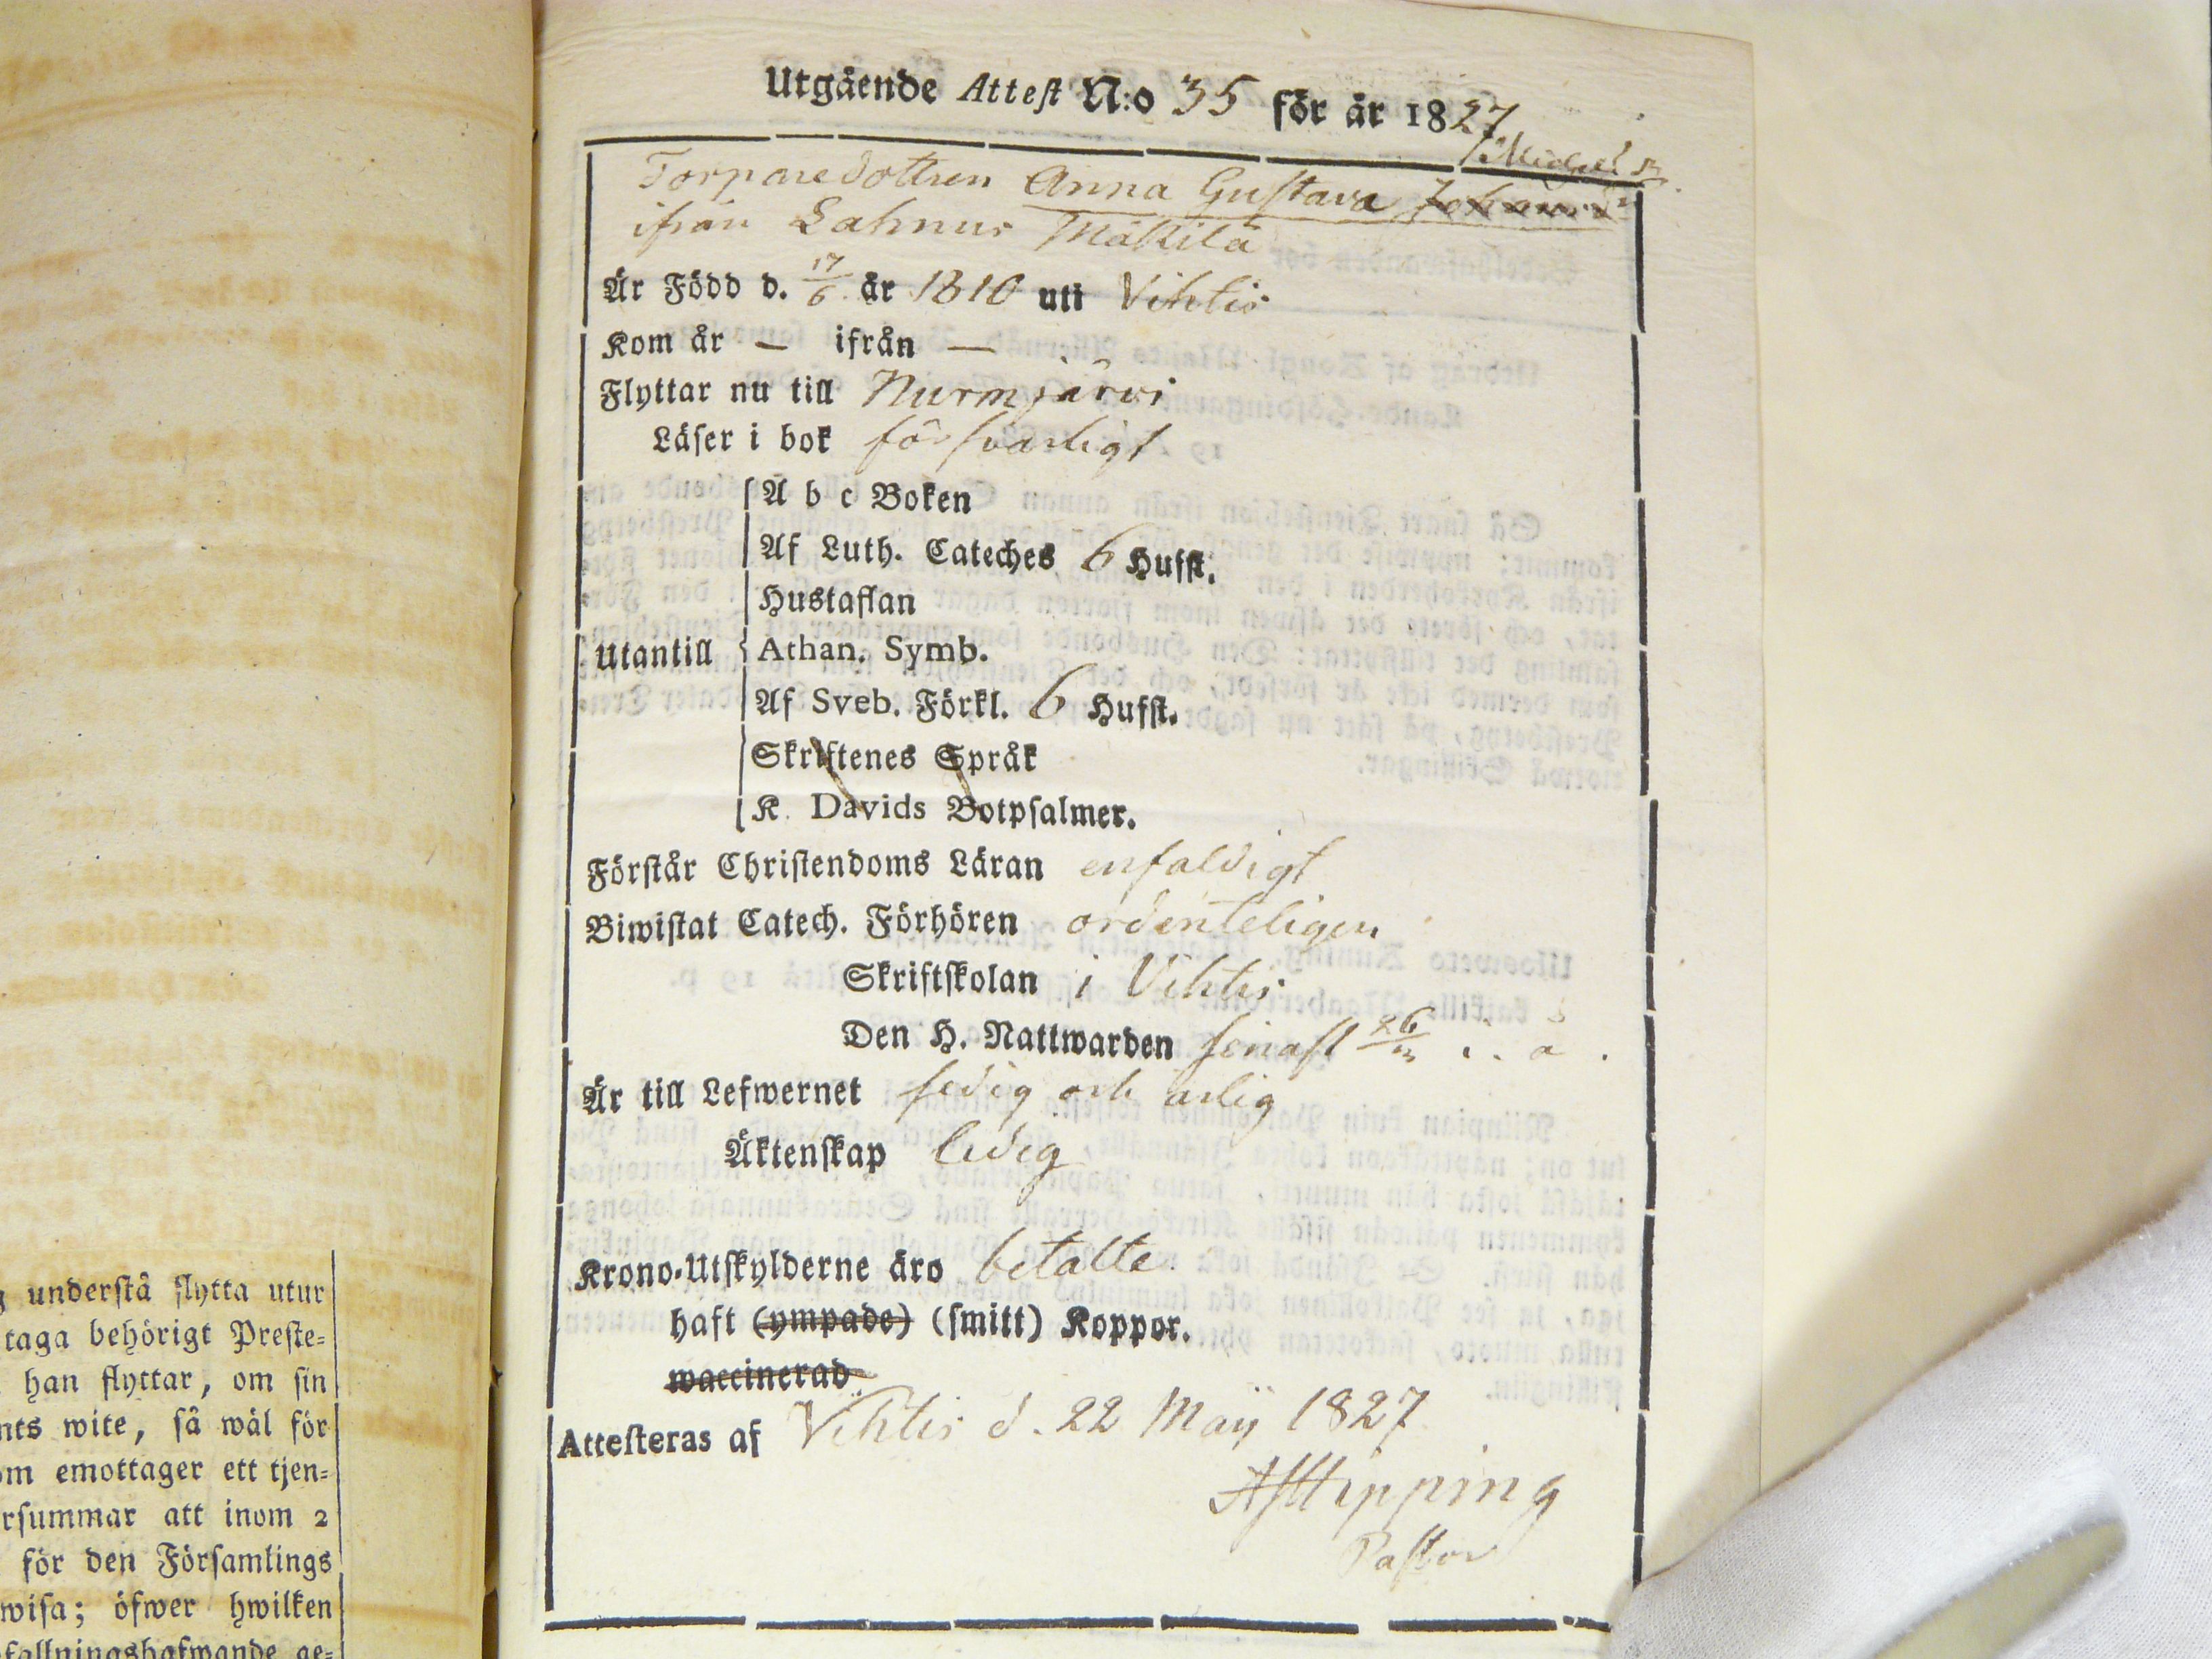 Utgående Attest N:o 35 för år 1827
Michelsd.
Torparedottren Anna Gustava
ifrån Lahnus Mäkilä
Är Född d. 17/6 år 1810 uti Vihtis
Kom år — ifrån —
Flyttar nu till Nurmijärvi
Läser i bok försvarligt
A b c Boken
Af Luth. Cateches 6 Hufst.
Hustaflan
Utantill
Athan. Symb.
Af Sveb. Förkl. 6 Hufst.
Skriftenes Språk
K. Davids Botpsalmer.
Förstår Christendoms Läran enfaldigt
Biwistat Catech. Förhören ordenteligen
Skriftskolan i Vihtis
Den H. Nattwarden senast 26/ i. å.
Är till Lefwernet sedig och ärlig
Äktenskap ledig
Krono-Utskylderne äro betalte
haft (ympade) (smitt) Koppor.
waccinerad
Attesteras af Vihtis d. 22 Maij 1827
Hipping
Pastor
g understå flytta utur
taga behörigt Preste-
han flyttar, om sin
nts wite, så wäl för
om emottager ett tjen-
rsummar att inom 2
för den Församlings
wisa; öfwer hwilken
efallningshafwande ge-